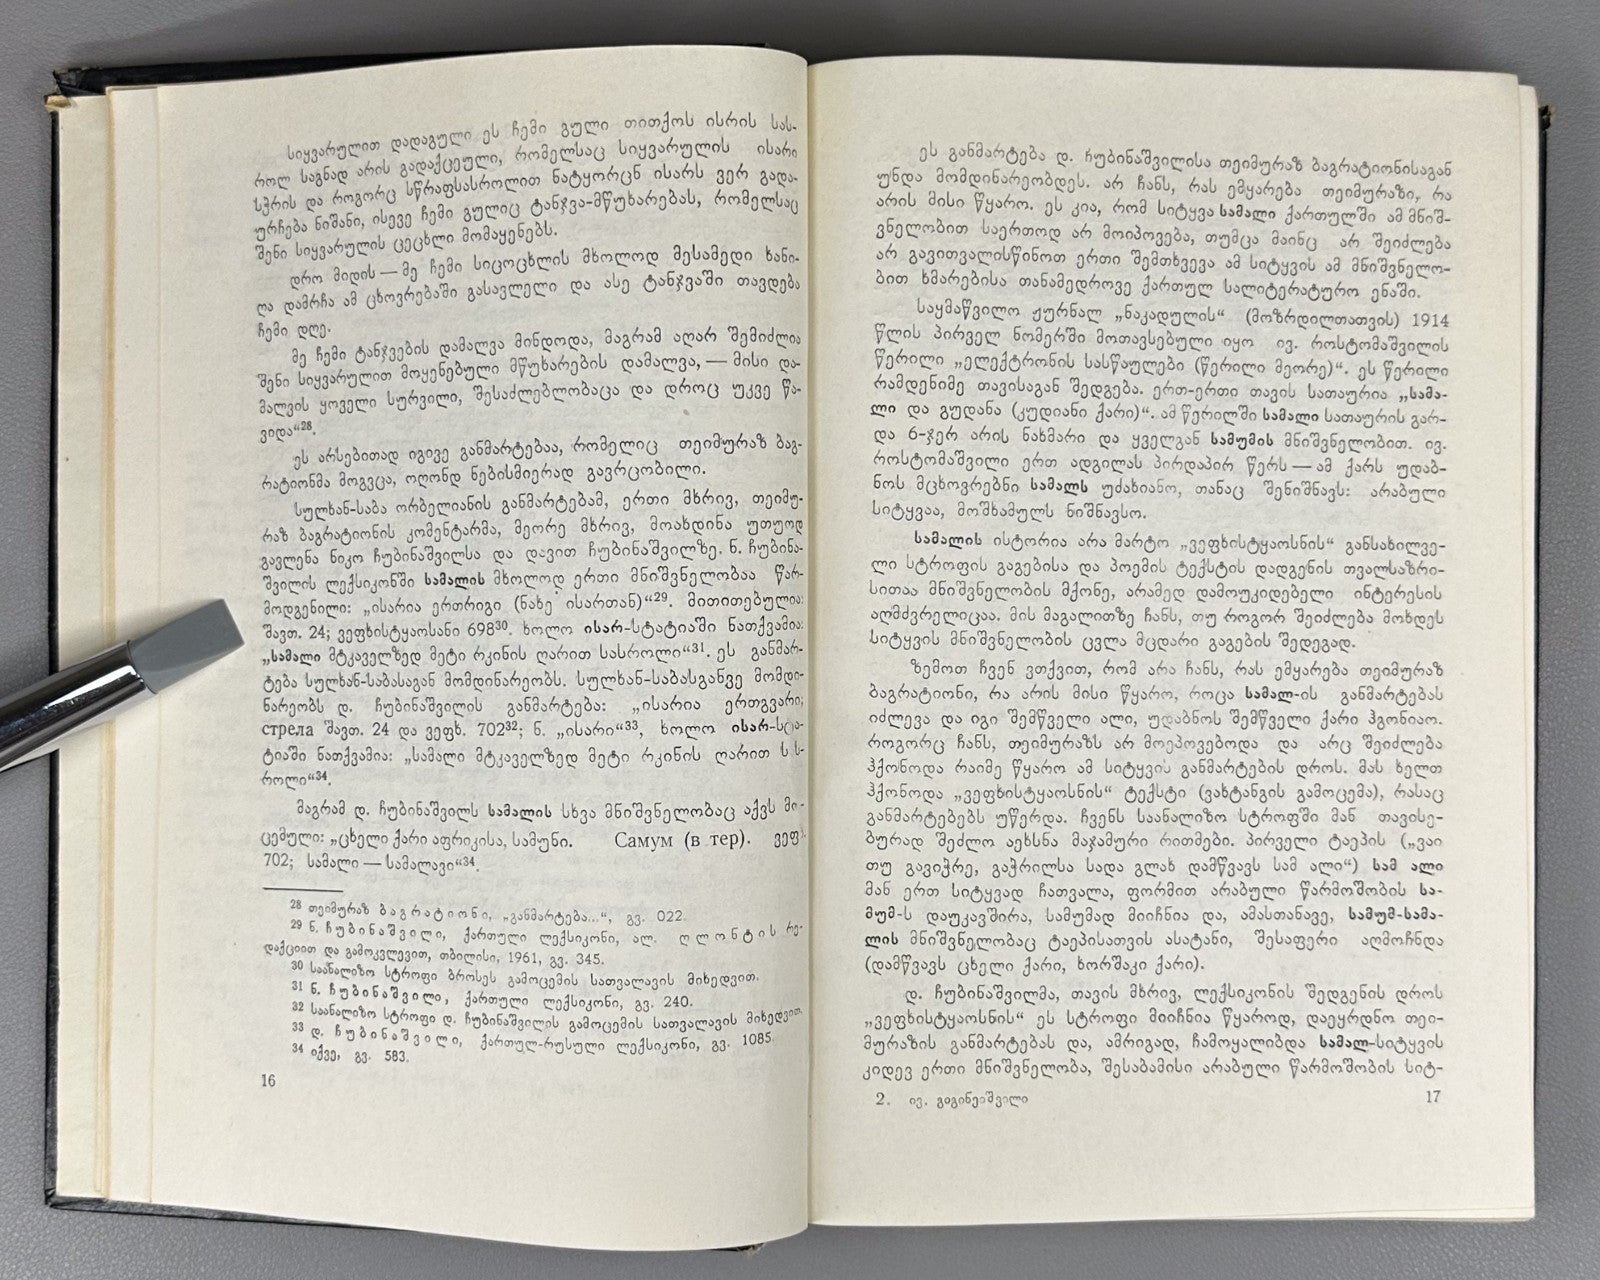 სიყვარულით დადაგული ეს ჩემი გული თითქოს ისრის სას-
როლ საგნად არის გადაქცეული, რომელსაც სიყვარულის ისარი
სჭრის და როგორც სწრაფსასროლით ნატყორცნ ისარს ვერ გადა-
ურჩება ნიშანი, ისევე ჩემი გულიც ტანჯვა-მწუხარებას, რომელსაც
შენი სიყვარულის ცეცხლი მომაყენებს.
დრო მიდის — მე ჩემი სიცოცხლის მხოლოდ მესამედი ხანი-
ღა დამრჩა ამ ცხოვრებაში გასავლელი და ასე ტანჯვაში თავდება
ჩემი დღე.
მე ჩემი ტანჯვების დამალვა მინდოდა, მაგრამ აღარ შემიძლია
შენი სიყვარულით მოყენებული მწუხარების დამალვა, — მისი და-
მალვის ყოველი სურვილი, შესაძლებლობაცა და დროც უკვე წა-
ვიდა“²⁸.
ეს არსებითად იგივე განმარტებაა, რომელიც თეიმურაზ ბაგ-
რატიონმა მოგვცა, ოღონდ ნებისმიერად გავრცობილი.
სულხან-საბა ორბელიანის განმარტებამ, ერთი მხრივ, თეიმუ-
რაზ ბაგრატიონის კომენტარმა, მეორე მხრივ, მოახდინა უთუოდ
გავლენა ნიკო ჩუბინაშვილსა და დავით ჩუბინაშვილზე. ნ. ჩუბინა-
შვილის ლექსიკონში სამალის მხოლოდ ერთი მნიშვნელობაა წარ-
მოდგენილი: „ისარია ერთრიგი (ნახე ისართან)“²⁹. მითითებულია:
შავთ. 24; ვეფხისტყაოსანი 698³⁰. ხოლო ისარ-სტატიაში ნათქვამია:
„სამალი მტკაველზედ მეტი რკინის ღარით სასროლი“³¹. ეს განმარ-
ტება სულხან-საბასაგან მომდინარეობს. სულხან-საბასგანვე მომდი-
ნარეობს დ. ჩუბინაშვილის განმარტება: „ისარია ერთგვარი;
стрела შავთ. 24 და ვეფხ. 702³²; ნ. „ისარი“³³, ხოლო ისარ-სტა-
ტიაში ნათქვამია: „სამალი მტკაველზედ მეტი რკინის ღარით ს ს-
როლი“³⁴.
მაგრამ დ. ჩუბინაშვილს სამალის სხვა მნიშვნელობაც აქვს მი-
ცემული: „ცხელი ქარი აფრიკისა, სამუნი. Самум (в тер). ვეფხ.
702; სამალი — სამალავი“³⁴.
²⁸ თეიმურაზ ბაგრატიონი, „განმარტება...“, გვ. 022.
²⁹ ნ. ჩუბინაშვილი, ქართული ლექსიკონი, ალ. ღლონტის რე-
დაქციით და გამოკვლევით, თბილისი, 1961, გვ. 345.
³⁰ საანალიზო სტროფი ბროსეს გამოცემის სათვალავის მიხედვით.
³¹ ნ. ჩუბინაშვილი, ქართული ლექსიკონი, გვ. 240.
³² საანალიზო სტროფი დ. ჩუბინაშვილის გამოცემის სათვალავის მიხედვით.
³³ დ. ჩუბინაშვილი, ქართულ-რუსული ლექსიკონი, გვ. 1085.
³⁴ იქვე, გვ. 583.
16
ეს განმარტება დ. ჩუბინაშვილისა თეიმურაზ ბაგრატიონისაგან
უნდა მომდინარეობდეს. არ ჩანს, რას ემყარება თეიმურაზი, რა
არის მისი წყარო. ეს კია, რომ სიტყვა სამალი ქართულში ამ მნიშ-
ვნელობით საერთოდ არ მოიპოვება, თუმცა მაინც არ შეიძლება
არ გავითვალისწინოთ ერთი შემთხვევა ამ სიტყვის ამ მნიშვნელო-
ბით ხმარებისა თანამედროვე ქართულ სალიტერატურო ენაში.
საყმაწვილო ჟურნალ „ნაკადულის“ (მოზრდილთათვის) 1914
წლის პირველ ნომერში მოთავსებული იყო ივ. როსტომაშვილის
წერილი „ელექტრონის სასწაულები (წერილი მეორე)“. ეს წერილი
რამდენიმე თავისაგან შედგება. ერთ-ერთი თავის სათაურია „სამა-
ლი და გუდანა (კუდიანი ქარი)“. ამ წერილში სამალი სათაურის გარ-
და 6-ჯერ არის ნახმარი და ყველგან სამუმის მნიშვნელობით. ივ.
როსტომაშვილი ერთ ადგილას პირდაპირ წერს — ამ ქარს უდაბ-
ნოს მცხოვრებნი სამალს უძახიანო, თანაც შენიშნავს: არაბული
სიტყვაა, მოშხამულს ნიშნავსო.
სამალის ისტორია არა მარტო „ვეფხისტყაოსნის“ განსახილვე-
ლი სტროფის გაგებისა და პოემის ტექსტის დადგენის თვალსაზრი-
სითაა მნიშვნელობის მქონე, არამედ დამოუკიდებელი ინტერესის
აღმძვრელიცაა. მის მაგალითზე ჩანს, თუ როგორ შეიძლება მოხდეს
სიტყვის მნიშვნელობის ცვლა მცდარი გაგების შედეგად.
ზემოთ ჩვენ ვთქვით, რომ არა ჩანს, რას ემყარება თეიმურაზ
ბაგრატიონი, რა არის მისი წყარო, როცა სამალ-ის განმარტებას
იძლევა და იგი შემწველი ალი, უდაბნოს შემწველი ქარი ჰგონიაო.
როგორც ჩანს, თეიმურაზს არ მოეპოვებოდა და არც შეიძლება
ჰქონოდა რაიმე წყარო ამ სიტყვის განმარტების დროს. მას ხელთ
ჰქონოდა „ვეფხისტყაოსნის“ ტექსტი (ვახტანგის გამოცემა), რასაც
განმარტებებს უწერდა. ჩვენს საანალიზო სტროფში მან თავისე-
ბურად შეძლო აეხსნა მაჯამური რითმები. პირველი ტაეპის („ვაი
თუ გავიჭრე, გაჭრილსა სადა გლახ დამწვავს სამ ალი“) სამ ალი
მან ერთ სიტყვად ჩათვალა, ფორმით არაბული წარმოშობის სა-
მუმ-ს დაუკავშირა, სამუმად მიიჩნია და, ამასთანავე, სამუმ-სამა-
ლის მნიშვნელობაც ტაეპისათვის ასატანი, შესაფერი აღმოჩნდა
(დამწვავს ცხელი ქარი, ხორშაკი ქარი).
დ. ჩუბინაშვილმა, თავის მხრივ, ლექსიკონის შედგენის დროს
„ვეფხისტყაოსნის“ ეს სტროფი მიიჩნია წყაროდ, დაეყრდნო თეი-
მურაზის განმარტებას და, ამრიგად, ჩამოყალიბდა სამალ-სიტყვის
კიდევ ერთი მნიშვნელობა, შესაბამისი არაბული წარმოშობის სიტ-
2. ივ. გიგინეიშვილი
17